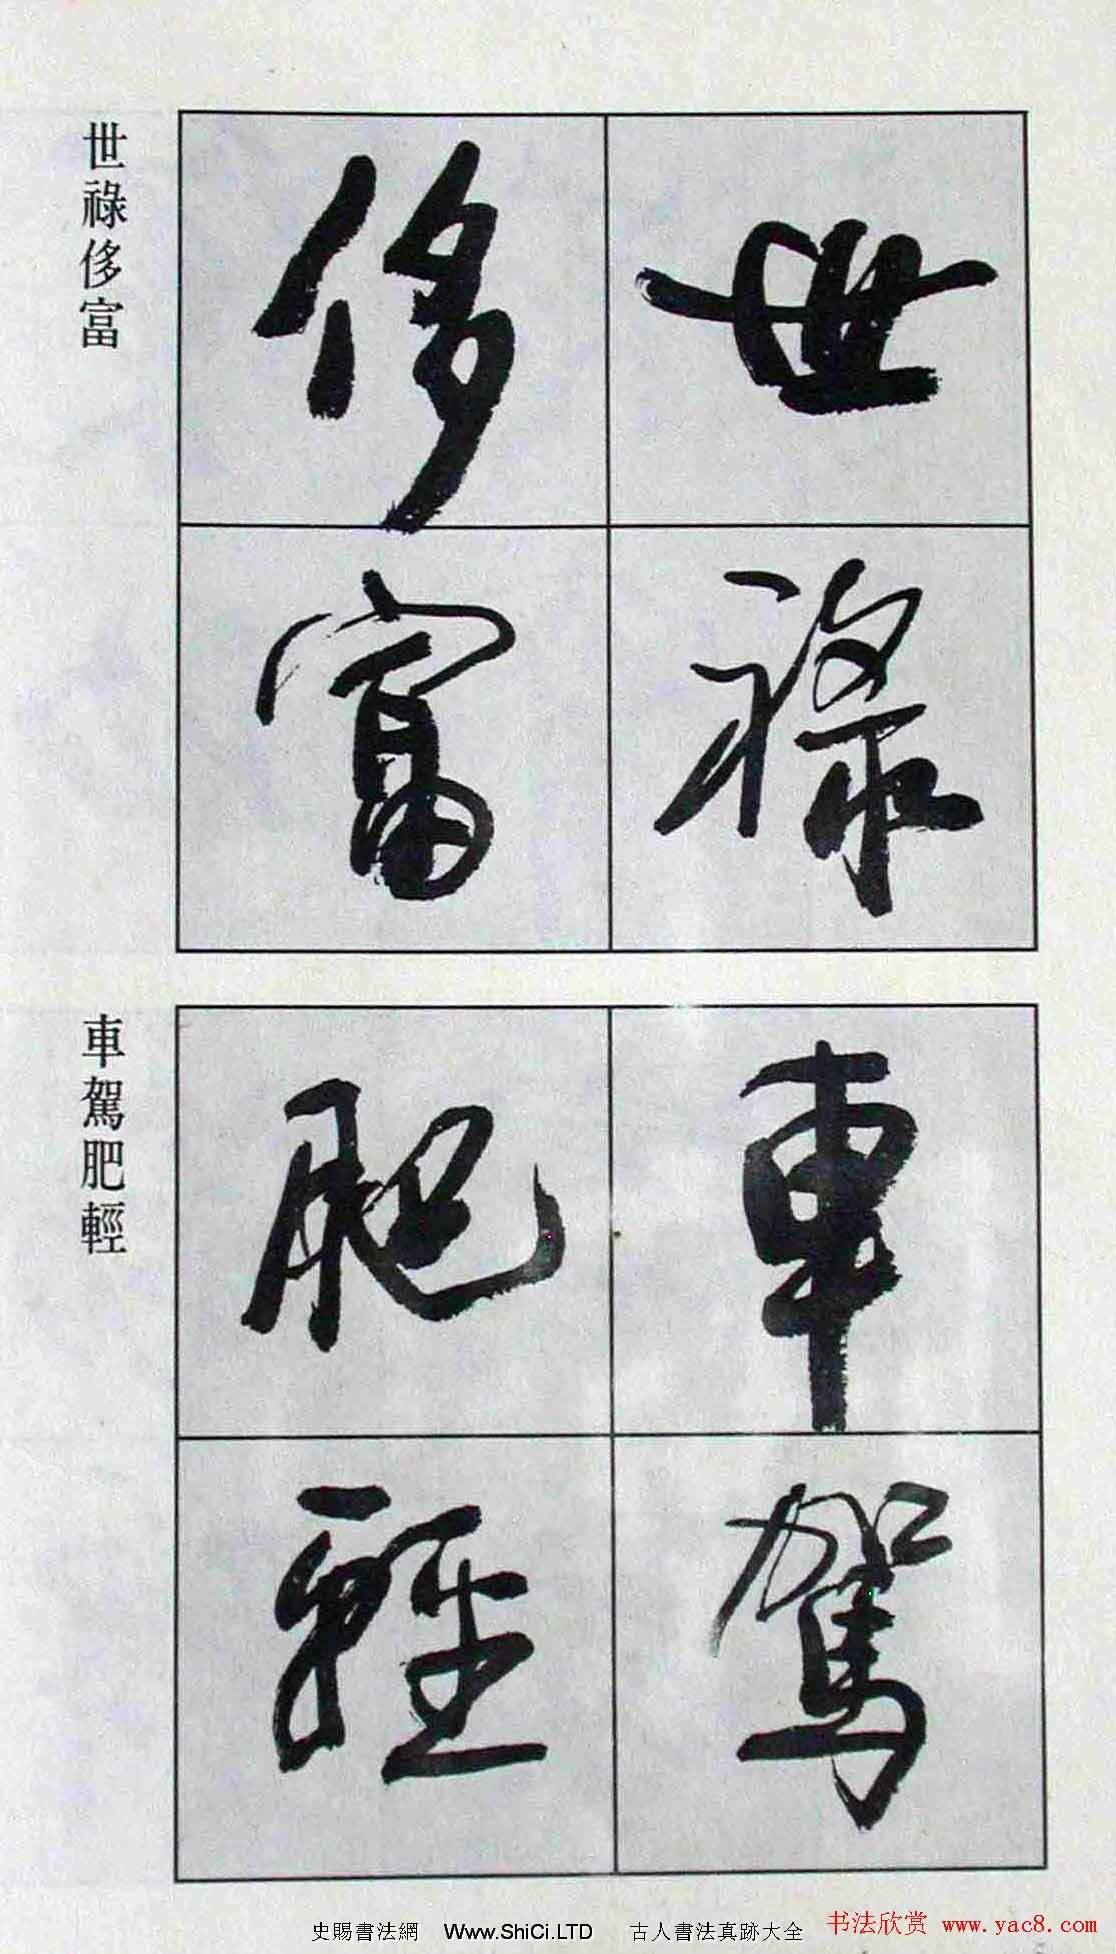 世祿
侈富
世祿侈富
車駕
肥輕
車駕肥輕
史賜書法網 Www.ShiCi.LTD 古人書法真跡大全
书法欣赏 www.yac8.com